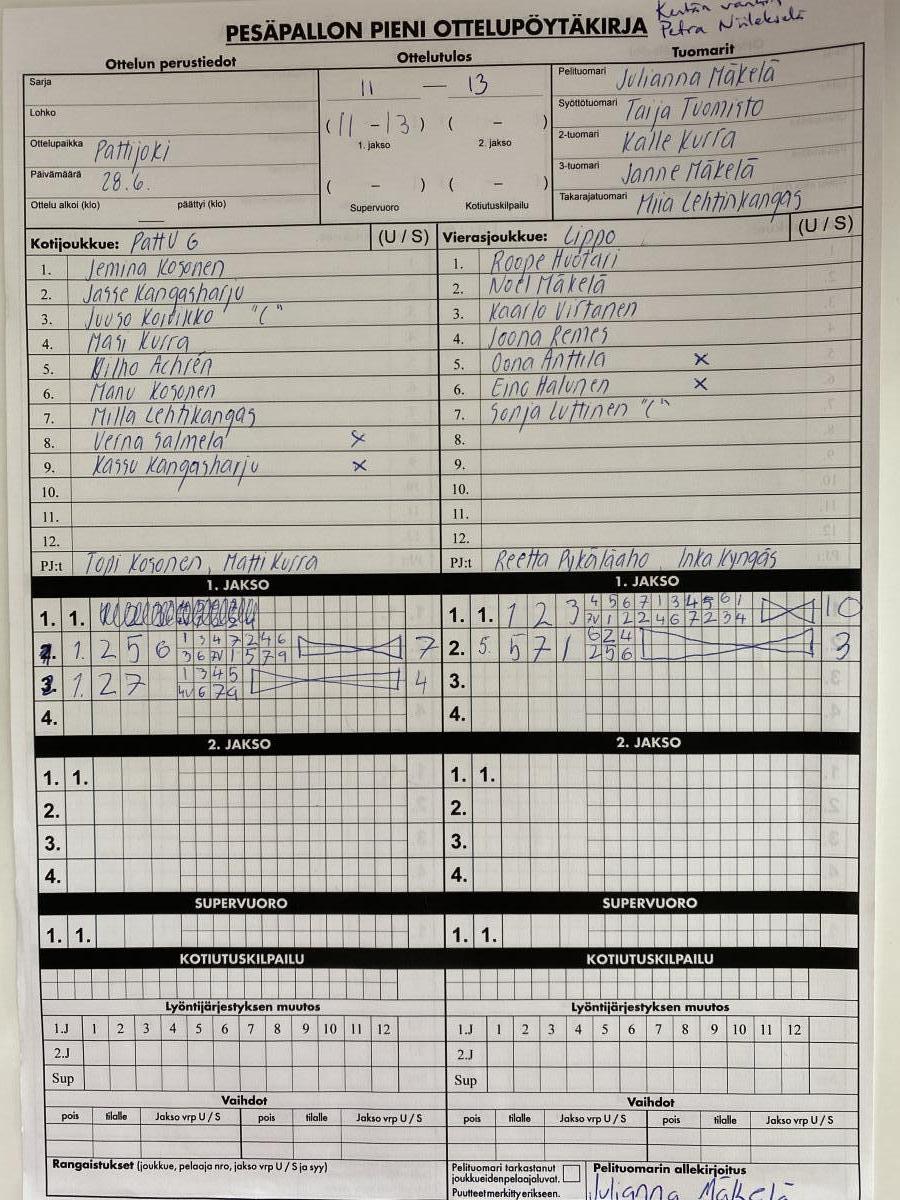 PESÄPALLON PIENI OTTELUPÖYTÄKIRJA
Petra
Ottelun perustiedot
Ottelutulos
Tuomarit
Sarja
11 — 13
Pelituomari Julianna Mäkelä
Lohko
(11 - 13) ( - )
Syöttötuomari Taija Tuomisto
1. jakso 2. jakso
Ottelupaikka Pattijoki
2-tuomari Kalle Kurra
Päivämäärä 28.6.
( - ) ( - )
3-tuomari Janne Mäkelä
Ottelu alkoi (klo) päättyi (klo)
Supervuoro Kotiutuskilpailu
Takarajatuomari Miia Lehtinkangas
Kotijoukkue: PattU G (U / S)
Vierasjoukkue: Lippo (U / S)
1. Jemina Kosonen
2. Jasse Kangasharju
3. Juuso Koivikko "C"
4. Masi Kurra
5. Vilho Achrén
6. Manu Kosonen
7. Milla Lehtikangas
8. Verna Salmela x
9. Kassu Kangasharju x
10.
11.
12.
PJ:t Topi Kosonen, Matti Kurra
1. Roope Huotari
2. Noel Mäkelä
3. Kaarlo Virtanen
4. Joona Remes
5. Oona Anttila x
6. Eino Halunen x
7. Sonja Luttinen "C"
8.
9.
10.
11.
12.
PJ:t Reetta Pykäläaho, Inka Kyngäs
1. JAKSO
1. 1.
1. 2 5 6 1 3 4 7 2 4 6 7
3 6 7V 1 5 7 9
1. 2 7 1 3 4 5 4
4V 6 7 9
4.
1. JAKSO
1. 1. 1 2 3 4 5 6 7 1 3 4 5 6 1 10
7V 1 2 2 4 6 7 2 3 4
2. 5. 5 7 1 6 2 4 3
2 5 6
3.
4.
2. JAKSO
1. 1.
2.
3.
4.
2. JAKSO
1. 1.
2.
3.
4.
SUPERVUORO
1. 1.
SUPERVUORO
1. 1.
KOTIUTUSKILPAILU
KOTIUTUSKILPAILU
Lyöntijärjestyksen muutos
1.J 1 2 3 4 5 6 7 8 9 10 11 12
2.J
Sup
Lyöntijärjestyksen muutos
1.J 1 2 3 4 5 6 7 8 9 10 11 12
2.J
Sup
Vaihdot
pois tilalle Jakso vrp U / S pois tilalle Jakso vrp U / S
Vaihdot
pois tilalle Jakso vrp U / S pois tilalle Jakso vrp U / S
Rangaistukset (joukkue, pelaaja nro, jakso vrp U / S ja syy)
Pelituomari tarkastanut
joukkueiden pelaajaluvat.
Puutteet merkitty erikseen.
Pelituomarin allekirjoitus
Julianna Mäkelä